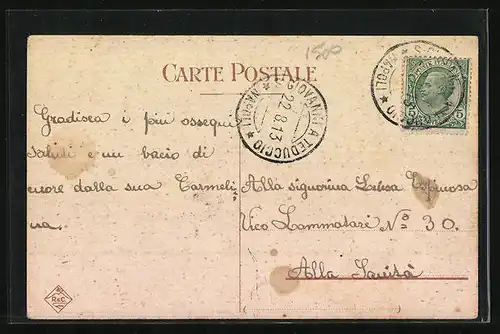 1500
CARTE POSTALE
S. GIOVANNI A TEDUCCIO
* (NAPOLI) *
22.8.13
5
Gradisca i più ossequi
saluti e un bacio di
cuore dalla sua Carmeli
na.
Alla signorina Luisa Espinosa
Vico Lammatari Nº 30.
Alla Sanità
R&C